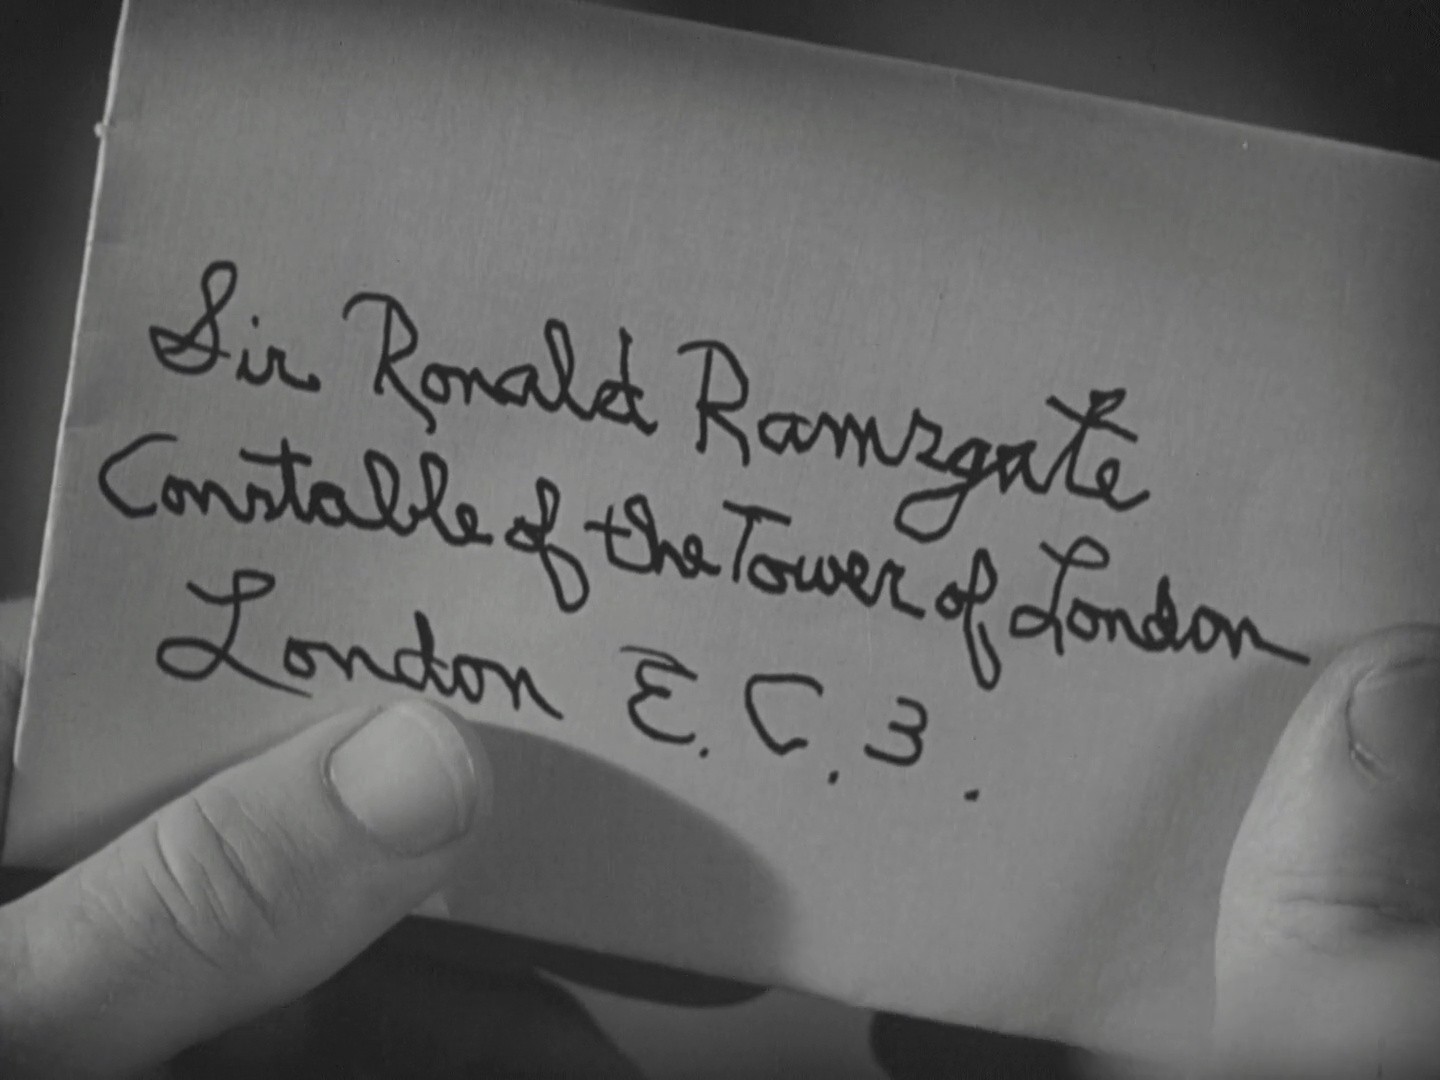 Sir Ronald Ramsgate
Constable of the Tower of London
London E.C.3.